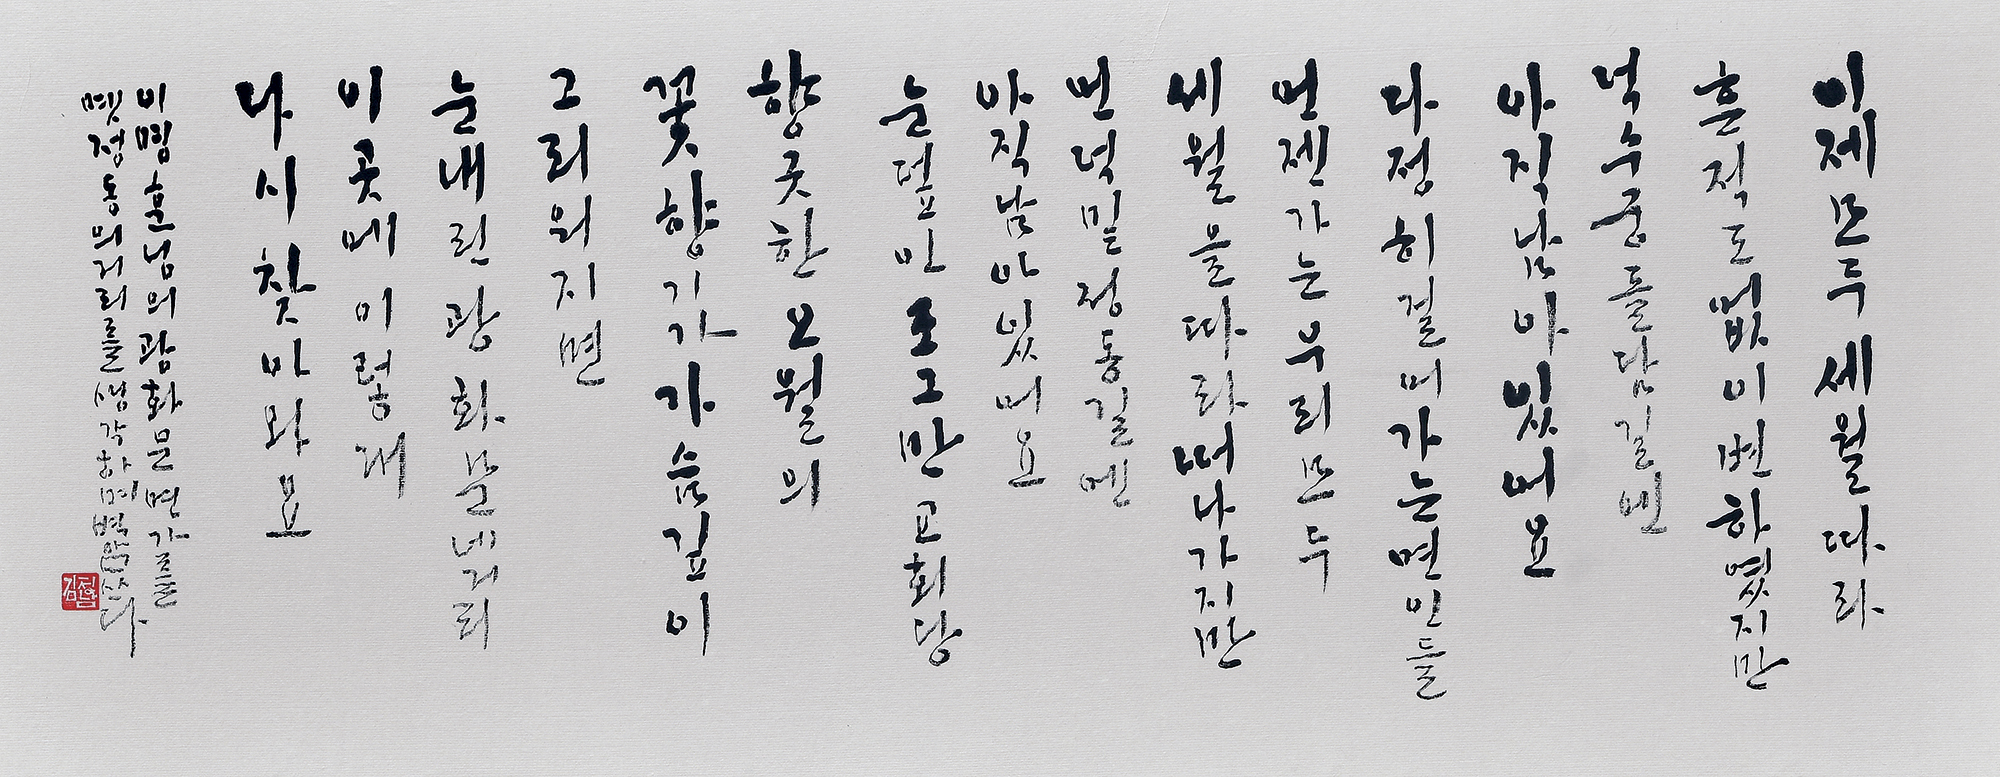 이제 모두 세월 따라
흔적도 없이 변하였지만
덕수궁 돌담길엔
아직 남아 있어요
다정히 걸어가는 연인들
언젠가는 우리 모두
세월을 따라 떠나가지만
언덕 밑 정동길엔
아직 남아 있어요
눈 덮인 조그만 교회당
향긋한 오월의
꽃향기가 가슴 깊이
그리워지면
눈 내린 광화문 네거리
이곳에 이렇게
다시 찾아와요
이영훈님의 광화문 연가를
옛 정동의 거리를 생각하며